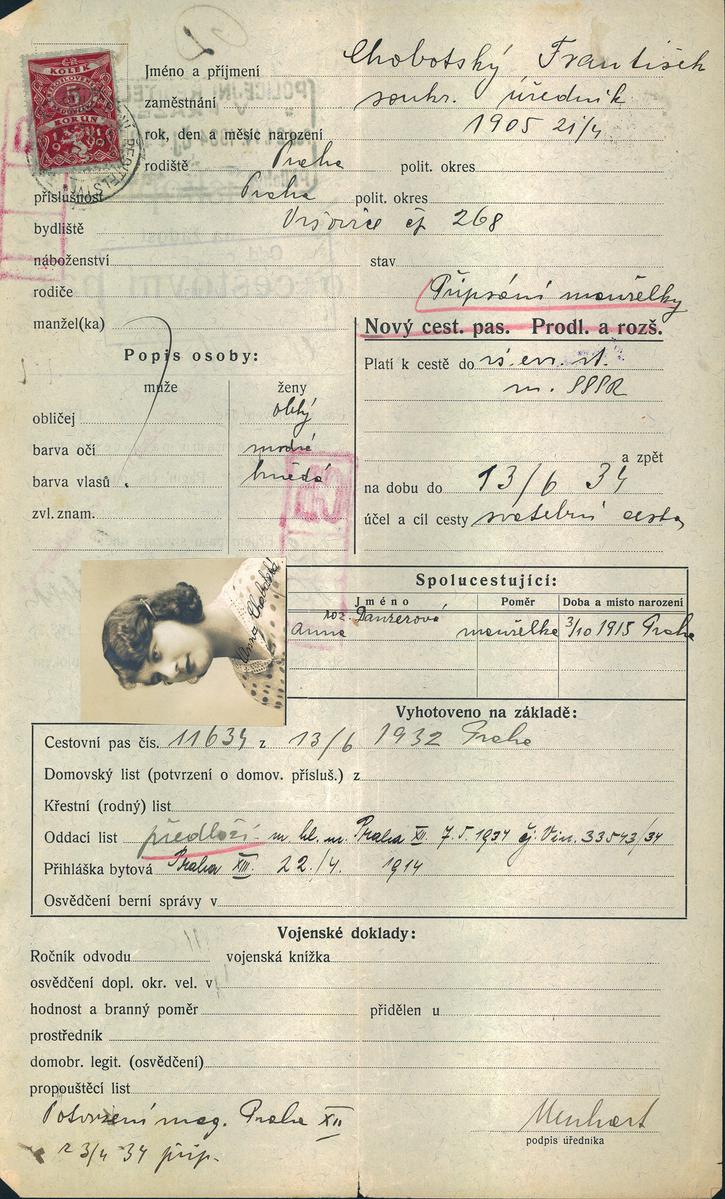 KOLEK
5
KORUN
Jméno a příjmení Chobotský František
zaměstnání soukr. úředník
rok, den a měsíc narození 1905 21/4
rodiště Praha polit. okres
příslušnost Praha polit. okres
bydliště Vršovice čp 268
náboženství stav
rodiče Připsání manželky
manžel(ka)
Nový cest. pas. Prodl. a rozš.
Popis osoby:
muže ženy
obličej oblý
barva očí modré
barva vlasů hnědá
zvl. znam.
Platí k cestě do
m. SSSR
a zpět
na dobu do 13/6 34
účel a cíl cesty svatební cesta
Anna Chobotská
Spolucestující:
Jméno Poměr Doba a místo narození
roz. Panzerová
Anna manželka 3/10 1915 Praha
Vyhotoveno na základě:
Cestovní pas čís. 11634 z 13/6 1932 Praha
Domovský list (potvrzení o domov. přísluš.) z
Křestní (rodný) list
Oddací list předloží m. hl. m. Praha XII. 7.5.1934 čj. Vin. 33543/34
Přihláška bytová Praha XIII. 22./4. 1914
Osvědčení berní správy v
Vojenské doklady:
Ročník odvodu vojenská knížka
osvědčení dopl. okr. vel. v
hodnost a branný poměr přidělen u
prostředník
domobr. legit. (osvědčení)
propouštěcí list
Potvrzení mag. Praha XII
z 3/4 34 přip.
Menhart
podpis úředníka